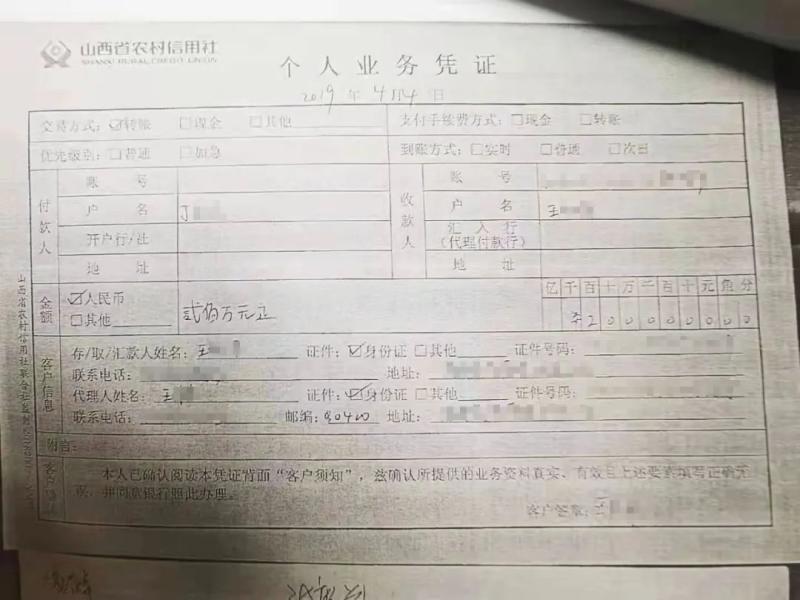 山西省农村信用社
SHANXI RURAL CREDIT UNION
个人业务凭证
2019 年 4月4 日
交易方式：☑转账 □现金 □其他
支付手续费方式：□现金 □转账
优先级别：□普通 □加急
到账方式：□实时 □普通 □次日
付款人
账 号
户 名 丁
开户行/社
地 址
收款人
账 号
户 名 王
汇入行
（代理付款行）
地 址
金额
☑人民币
□其他
贰佰万元正
亿千百十万千百十元角分
2 0 0 0 0 0 0 0 0
客户信息
存/取/汇款人姓名：王 证件：☑身份证 □其他 证件号码：
联系电话： 地址：
代理人姓名：王 证件：☑身份证 □其他 证件号码：
联系电话： 邮编： 地址：
附言：
本人已确认阅读本凭证背面“客户须知”，兹确认所提供的业务资料真实、有效且上述要素填写正确无
误，并同意银行照此办理。
客户签章：